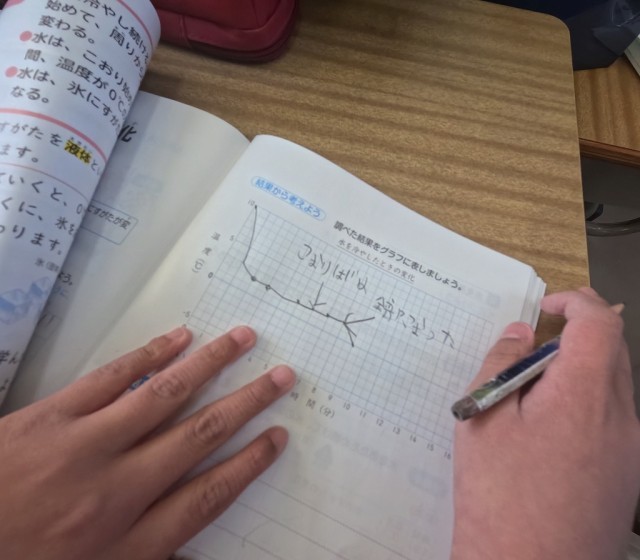 冷やし続け
始めて、周りか
変わる。
●水は、こおり始
間、温度が0℃
●水は、氷にすが
なる。
すがたを液体と
ます。
ていくと、0
くに、氷を
わります。
化
にすがたが変
結果から考えよう
調べた結果をグラフに表しましょう。
水を冷やしたときの変化
温度(℃)
10
5
0
-5
こおりはじめ
全部こおった
4 5 7 8 9 10 11 12 13 14 15 16
時間(分)